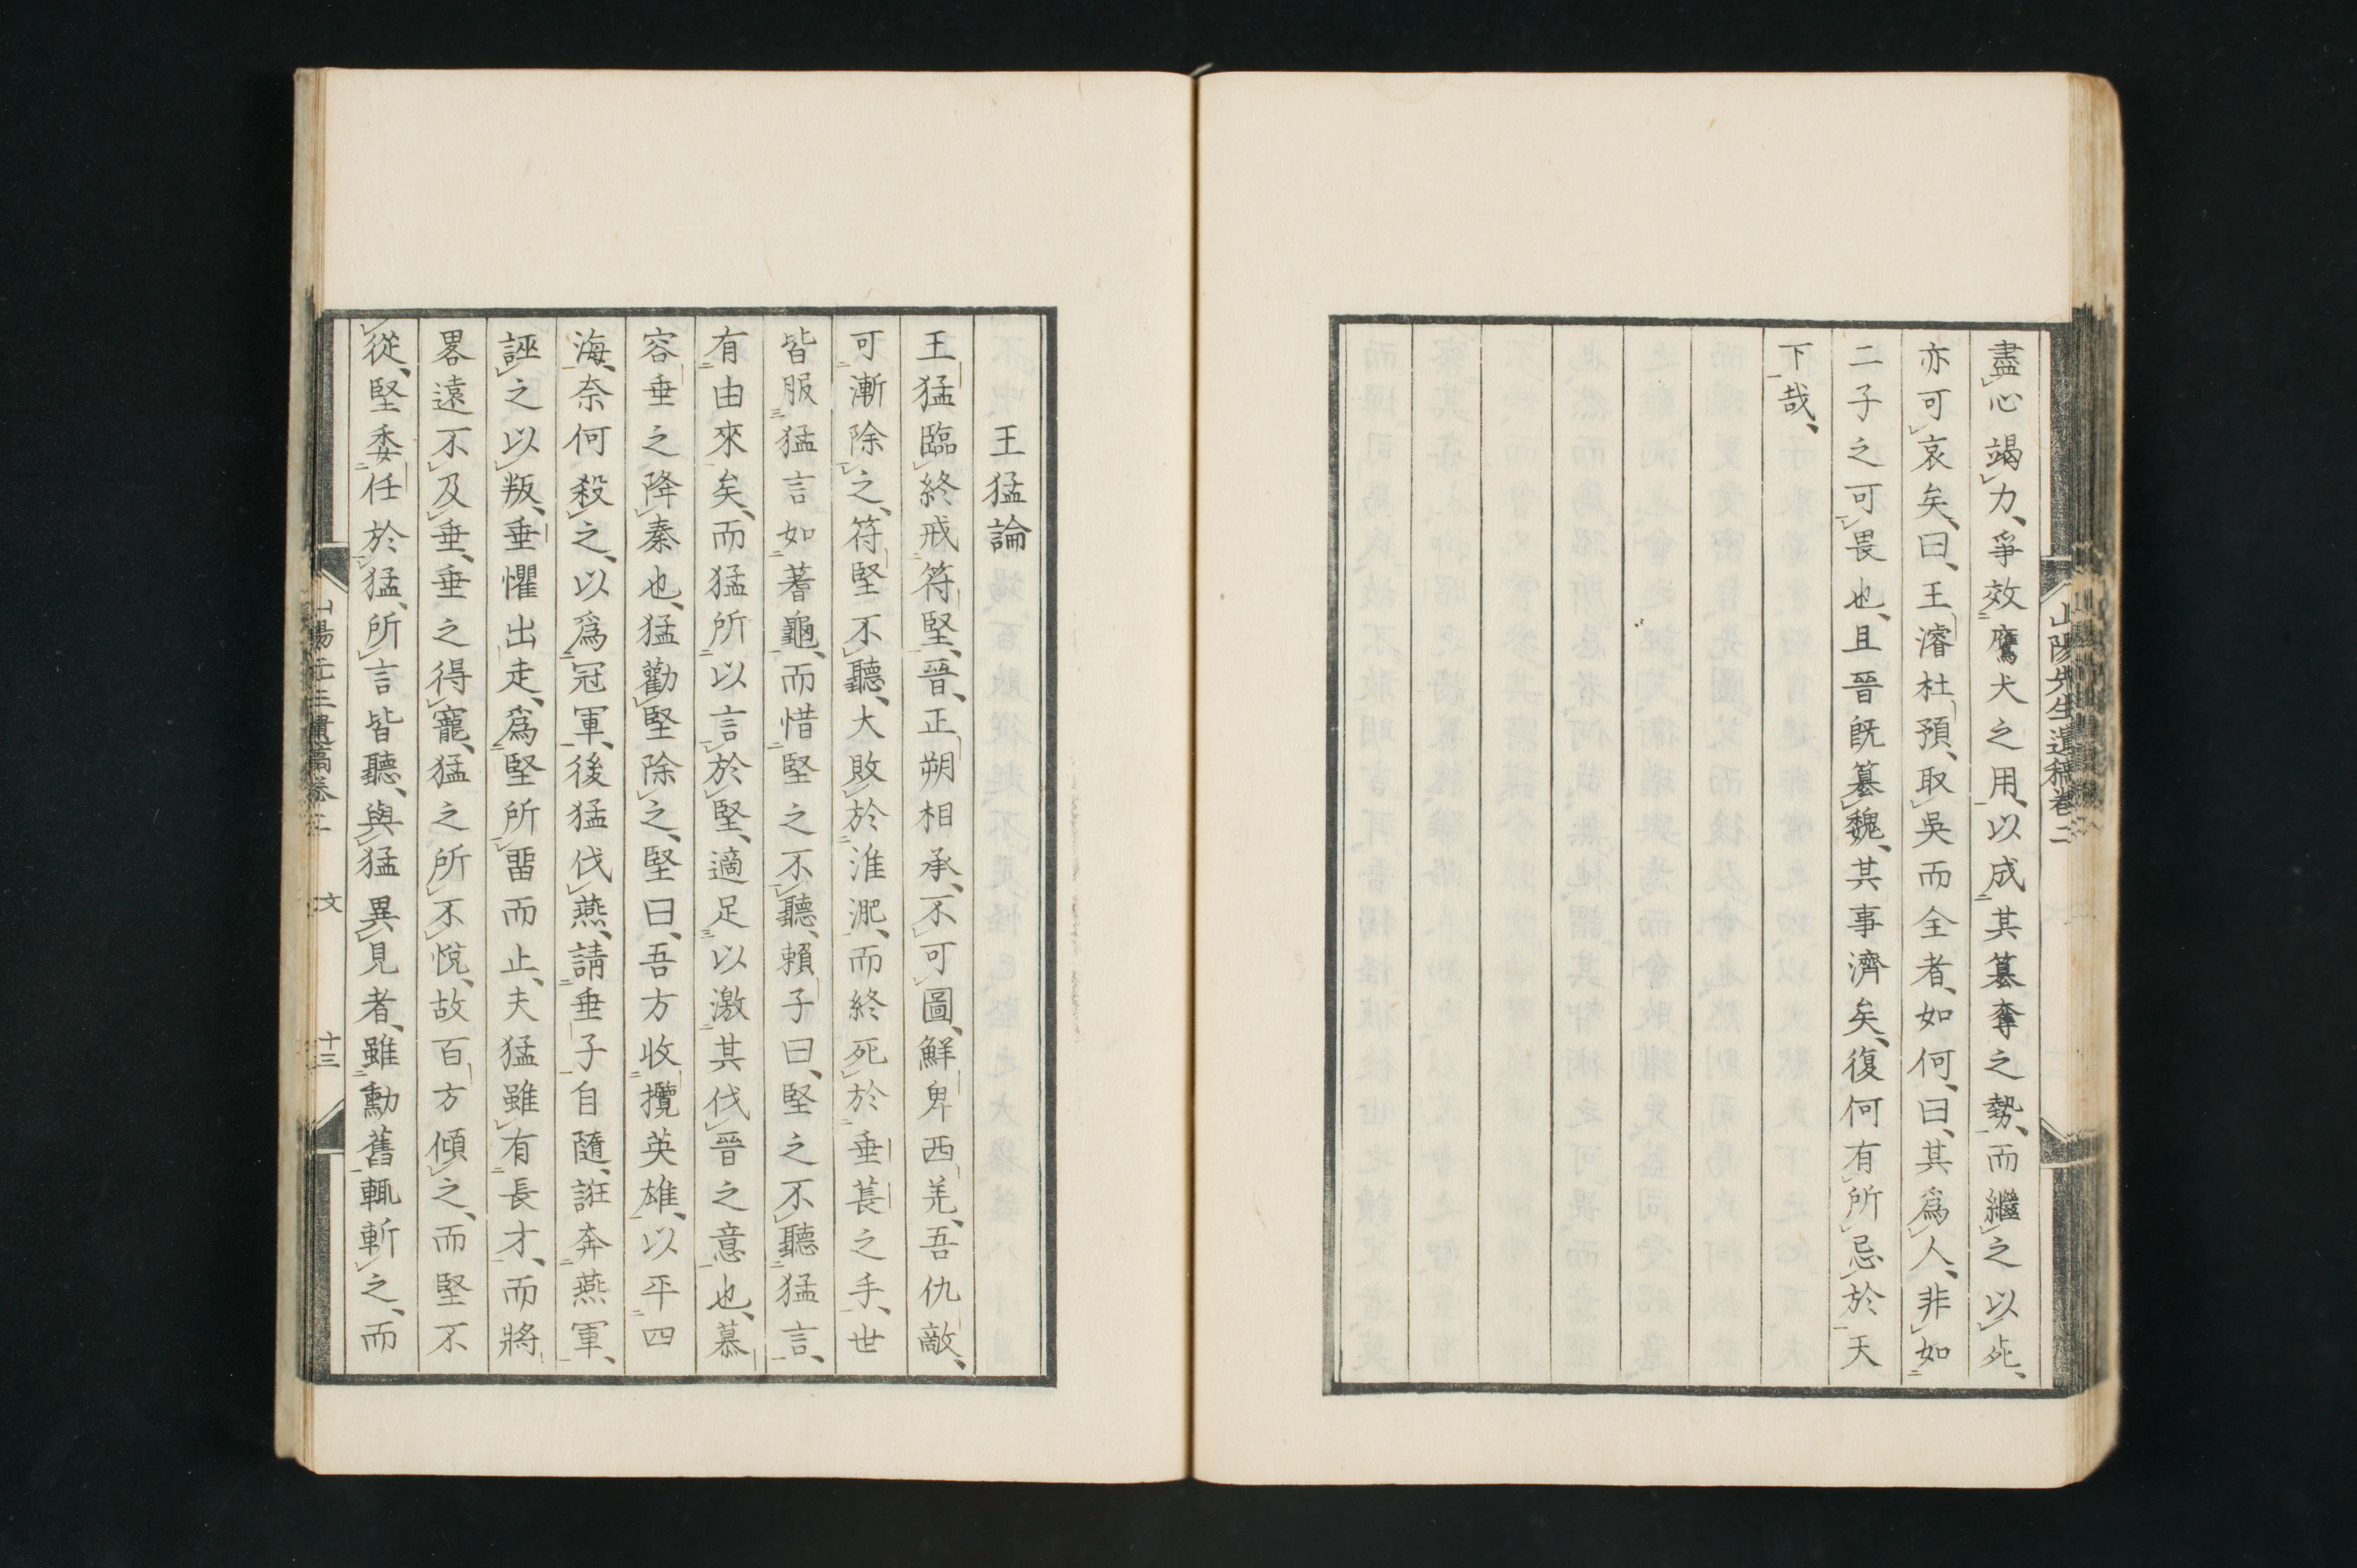 山陽先生遺稿卷二
盡心竭力、爭效鷹犬之用、以成其簒奪之勢、而繼之以死、
亦可哀矣、曰、王濬杜預、取吳而全者、如何、曰、其爲人、非如
二子之可畏也、且晉旣簒魏、其事濟矣、復何有所忌於天
下哉、
王猛論
王猛臨終戒符堅、晉、正朔相承、不可圖、鮮卑西羌、吾仇敵、
可漸除之、符堅不聽、大敗於淮淝、而終死於垂萇之手、世
皆服猛言如蓍龜、而惜堅之不聽、賴子曰、堅之不聽猛言、
有由來矣、而猛所以言於堅、適足以激其伐晉之意也、慕
容垂之降秦也、猛勸堅除之、堅曰、吾方收攬英雄、以平四
海、奈何殺之、以爲冠軍、後猛伐燕、請垂子自隨、誑奔燕軍、
誣之以叛、垂懼出走、爲堅所畱而止、夫猛雖有長才、而將
畧遠不及垂、垂之得寵、猛之所不悅、故百方傾之、而堅不
從、堅委任於猛、所言皆聽、與猛異見者、雖勳舊輒斬之、而
山陽先生遺稿卷二 文 十三